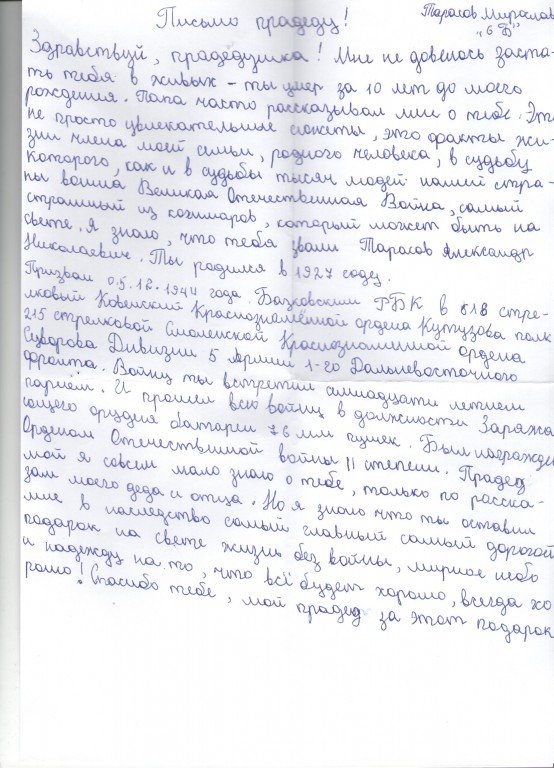 Письмо прадеду!
Тарасов Мирослав
"6 Б"
Здравствуй, прадедушка! Мне не довелось заста-
ть тебя в живых - ты умер за 10 лет до моего
рождения. Папа часто рассказывал мне о тебе. Это
не просто увлекательные сюжеты, это факты жи-
зни члена моей семьи, родного человека, в судьбу
которого, как и в судьбы тысяч людей нашей стра-
ны вошла Великая Отечественная Война, самый
страшный из кошмаров, который может быть на
свете. Я знаю, что тебя звали Тарасов Александр
Николаевич. Ты родился в 1927 году.
Призван 05.12.1944 года. Базковским РВК в 618 стре-
лковый Ковенский Краснознамённой ордена Кутузова полк
215 стрелковой Смоленской Краснознаменной ордена
Суворова Дивизии 5 Армии 1-го Дальневосточного
фронта. Войну ты встретил семнадцати летнем
парнем. И прошел всю войну в должности Заряжа-
ющего орудия батареи 76 мм пушек. Был награжден
Орденом Отечественной войны II степени. Прадед
мой я совсем мало знаю о тебе, только по расска-
зам моего деда и отца. Но я знаю что ты оставил
мне в наследство самый главный самый дорогой
подарок на свете жизнь без войны, мирное небо
и надежду на то, что всё будет хорошо, всегда хо-
рошо! Спасибо тебе, мой прадед за этот подарок